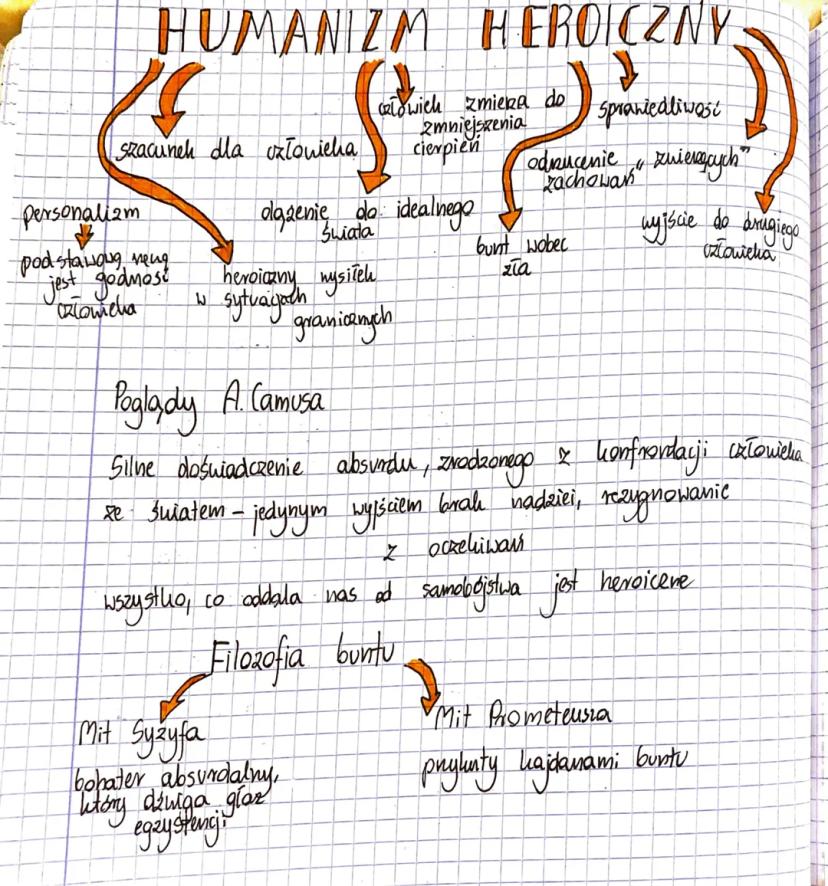 HUMANIZM HEROICZNY
szacunek dla człowieka
człowiek zmierza do
zmniejszenia
cierpień
sprawiedliwość
odrzucenie „zwierzęcych"
zachowań
personalizm
podstawową
jest godność
człowieka
dążenie do idealnego
świata
heroiczny wysiłek
w sytuacjach
granicznych
bunt wobec
zła
wyjście do drugiego
człowieka
Poglądy A. Camusa
Silne doświadczenie absurdu, zrodzonego z konfrontacji człowieka
ze światem – jedynym wyjściem brak nadziei, rezygnowanie
z oczekiwań
wszystko, co oddala nas od samobójstwa jest heroiczne
Filozofia buntu
Mit Syzyfa
bohater absurdalny,
który dźwiga głaz
egzystencji
Mit Prometeusza
przykuty kajdanami buntu